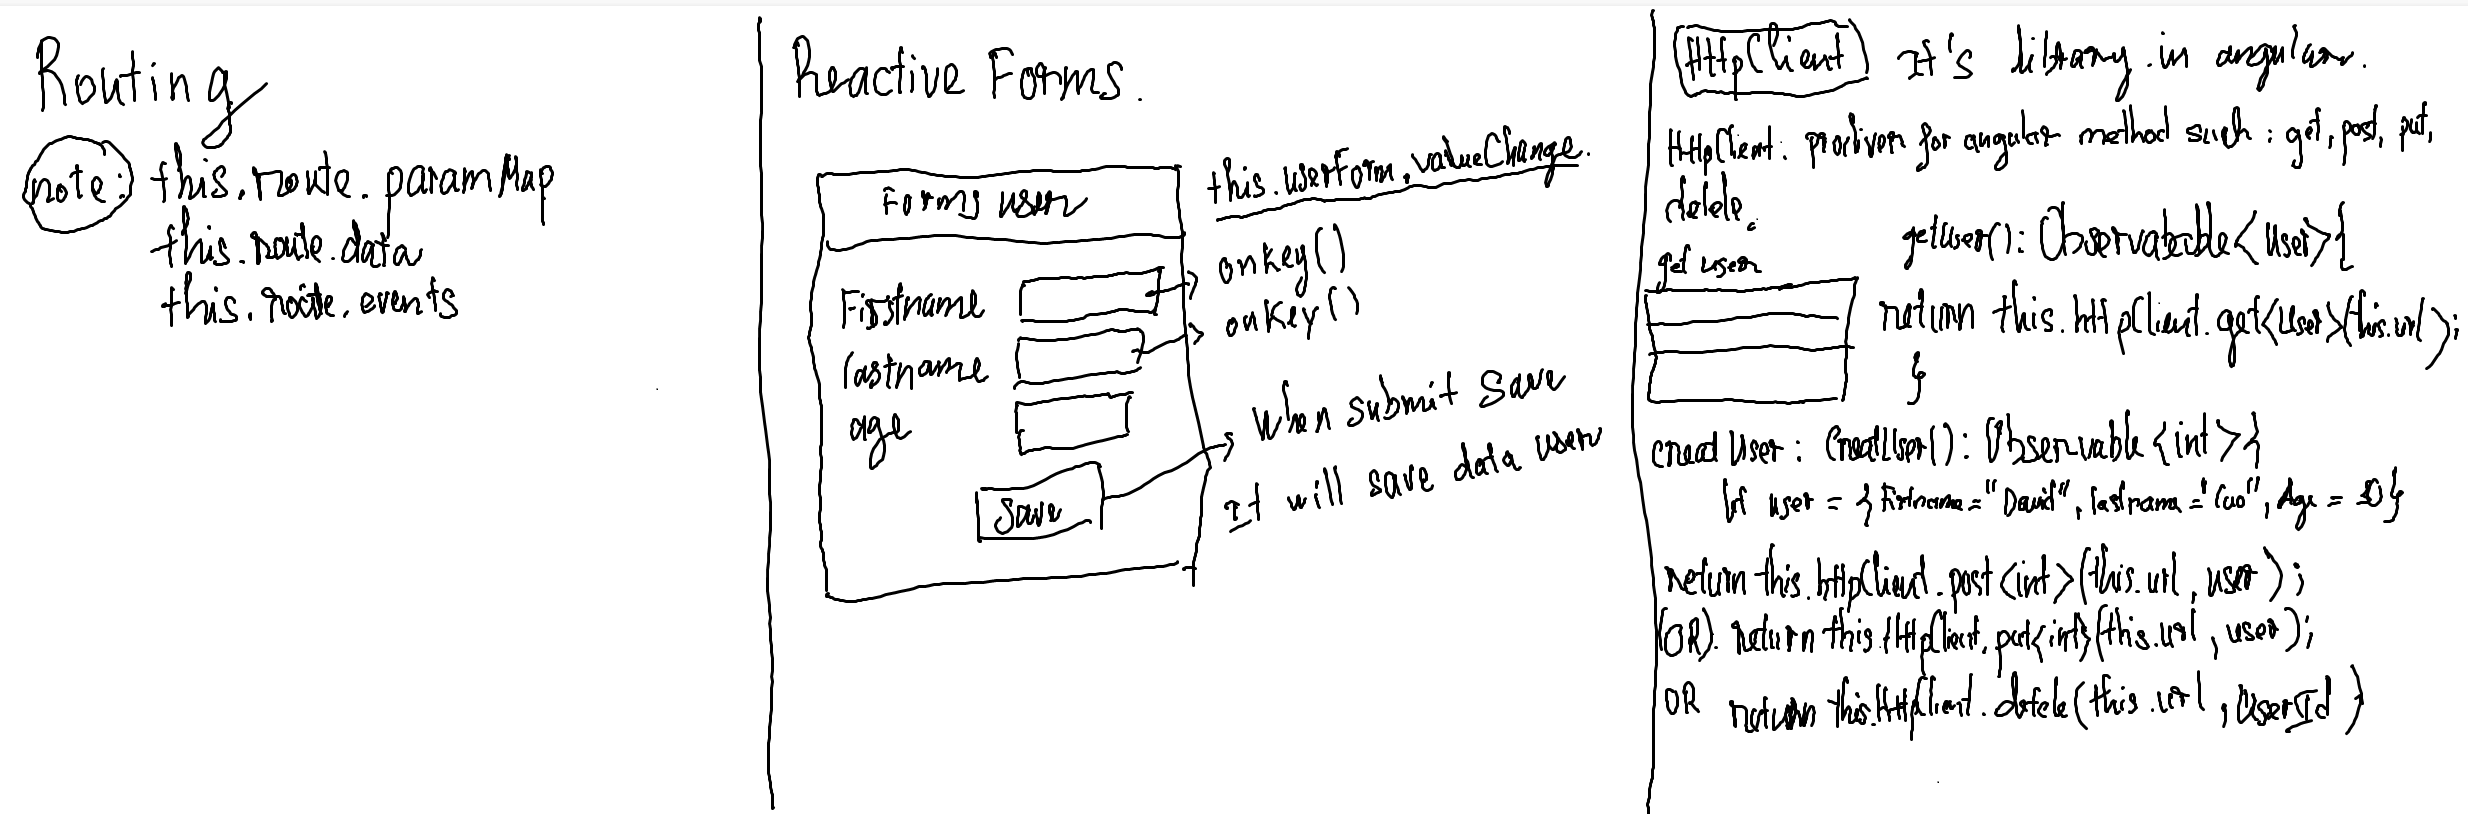 Routing
note: this.route.paramMap
this.route.data
this.route.events
Reactive Forms.
this.userForm.valueChange.
Forms user
Firstname
onkey()
lastname
onkey()
age
When submit save
It will save data user
Save
HttpClient It's library in angular.
HttpClient: for angular method such: get, post, put,
delele.
get user
getUser(): Observable<User>{
return this.httpClient.get<User>(this.url);
}
creat User: CreatUser(): Observable<int>{
let user = { Firstname="David", lastname="Cao", Age = 30}
return this.httpClient.post<int>(this.url, user);
(OR). return this.HttpClient.put<int>(this.url, user);
OR return this.HttpClient.delele(this.url, UserId)